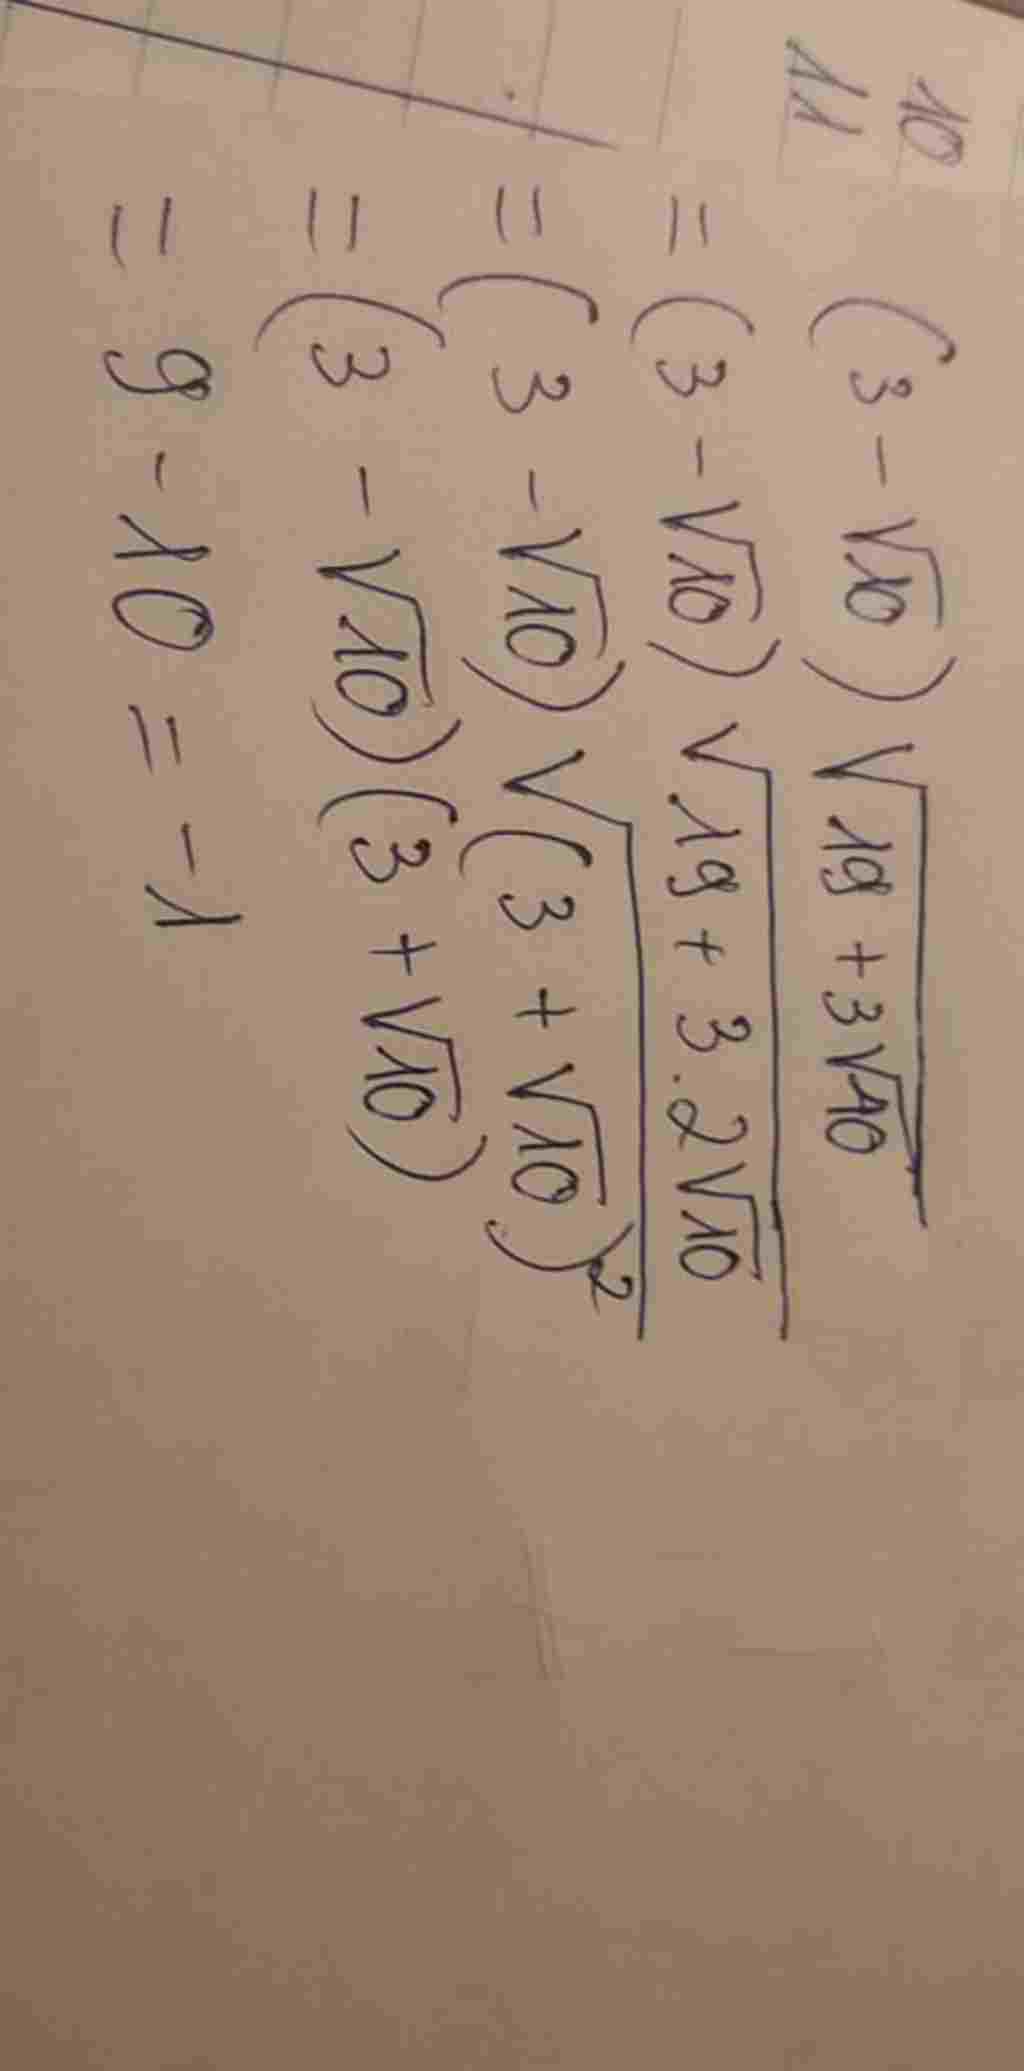 10
11
(3 - √10) √(19 + 3√40)
= (3 - √10) √(19 + 3.2√10)
= (3 - √10) √((3 + √10)²)
= (3 - √10)(3 + √10)
= 9 - 10 = -1